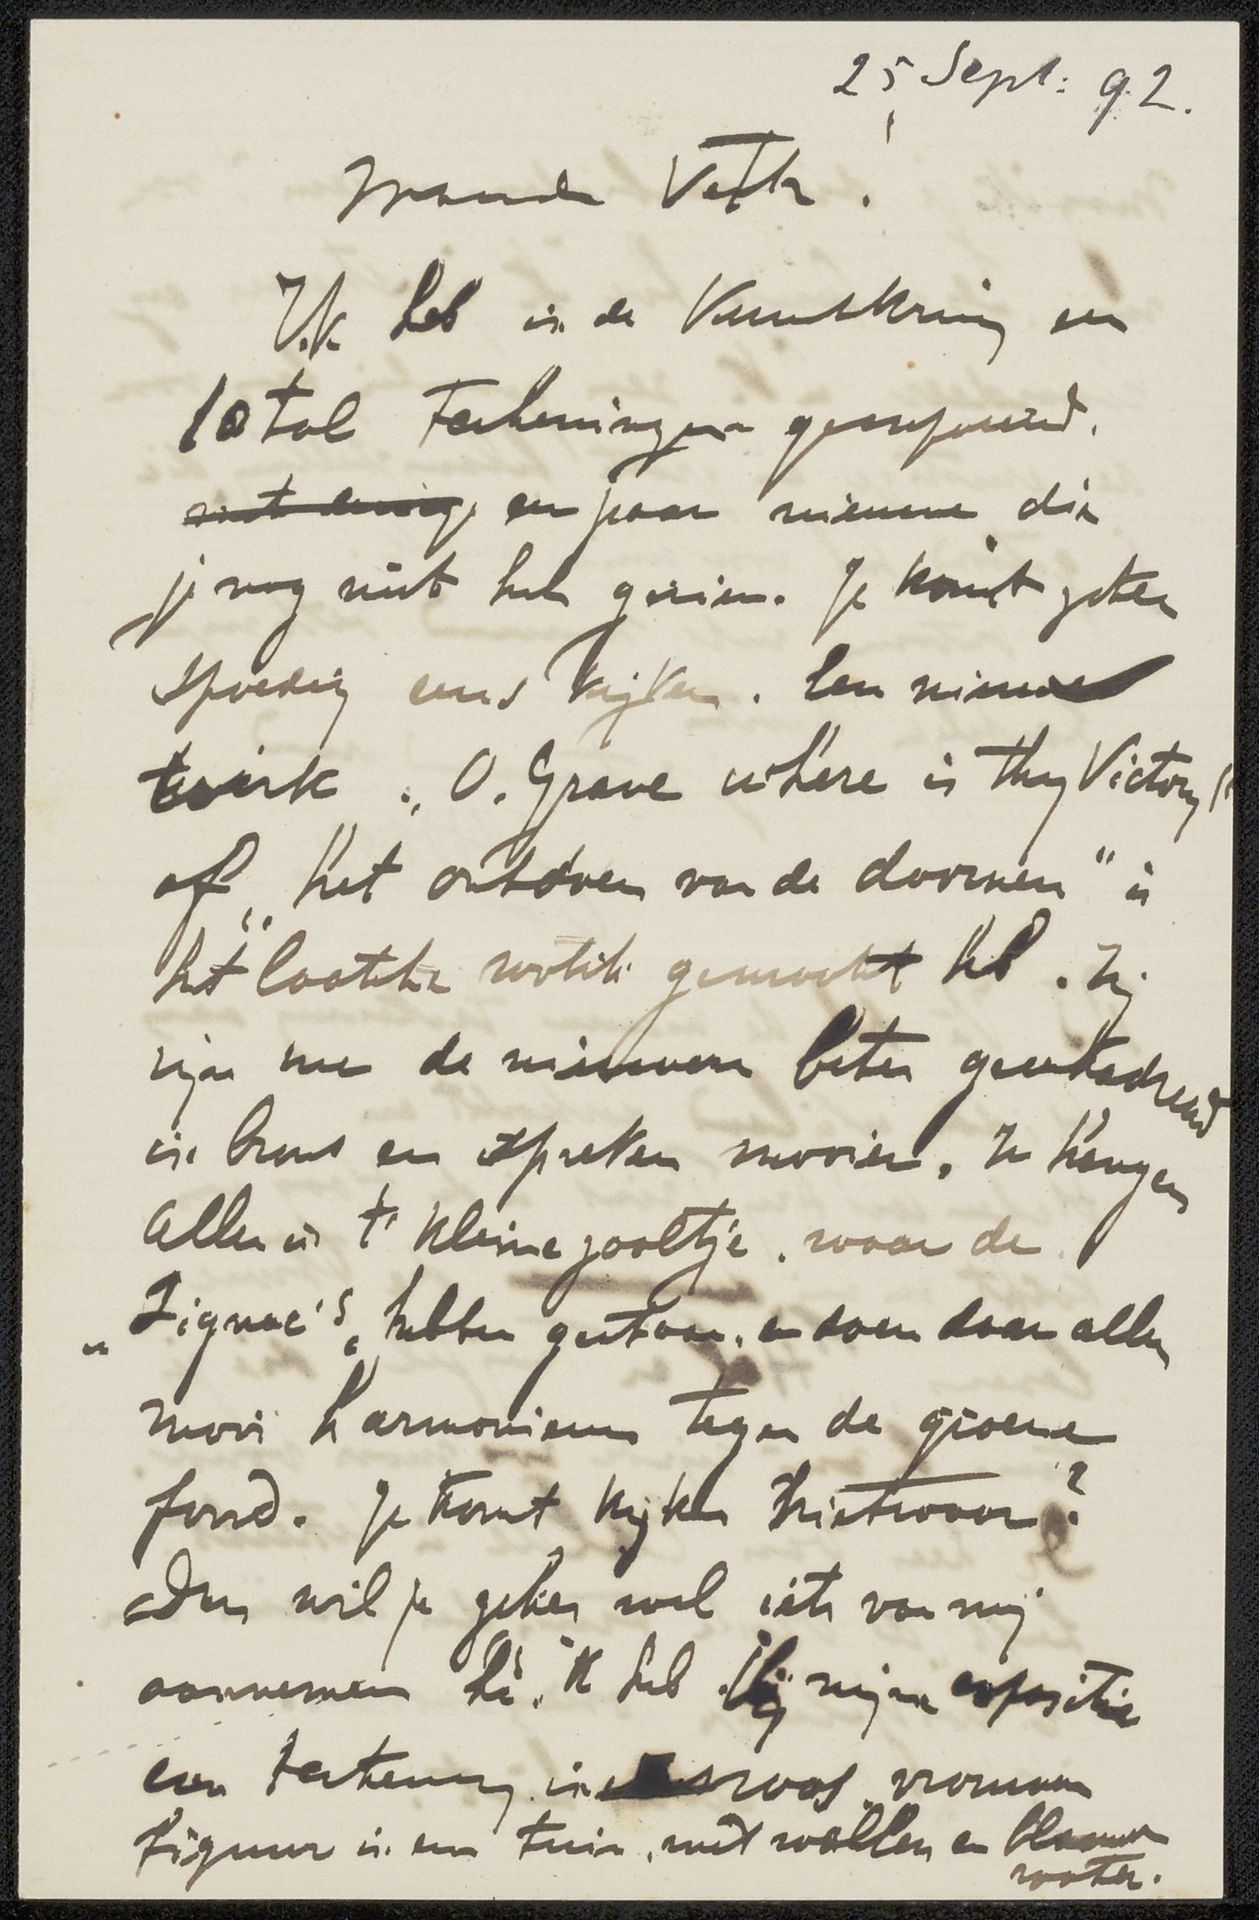 25 Sept: 92.
Waarde Veth.
Ik heb in de Kunstkring een
10 tal Teekeningen geexposeerd.
met eenige een paar nieuwe die
je nog niet heb gezien. Je komt zeker
spoedig eens kijken. Een nieuwe
werk „O. Grave where is Thy Victory"
of „het ontdoen van de doornen" is
het laatste wat ik gemaakt heb. Zij
zijn nu de nieuwen beter geenkadreerd
in brons en spreken mooier. Ze hangen
allen in 't kleine zaaltje. waar de
„Signac's" hebben gestaan. en doen daar allen
mooi harmonieus tegen de groene
fond. Je komt kijken niet waar?
En wil je zeker wel iets van mij
aannemen hè. ik heb bij mijn expositie
een teekening in roos vrouwen
figuur in een tuin, met wallen en blauw
water.